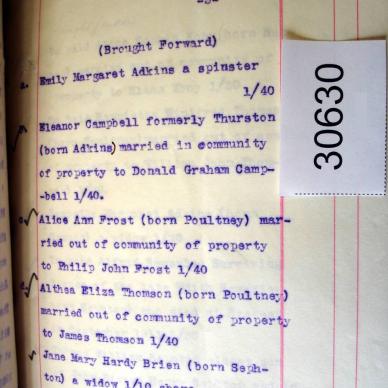 (Brought Forward)
a. Emily Margaret Adkins a spinster
1/40
Eleanor Campbell formerly Thurston
(born Adkins) married in community
of property to Donald Graham Camp-
-bell 1/40.
c. Alice Ann Frost (born Poultney) mar-
ried out of community of property
to Philip John Frost 1/40
d. Althea Eliza Thomson (born Poultney)
married out of community of property
to James Thomson 1/40
Jane Mary Hardy Brien (born Seph-
ton) a widow 1/10 share
30630